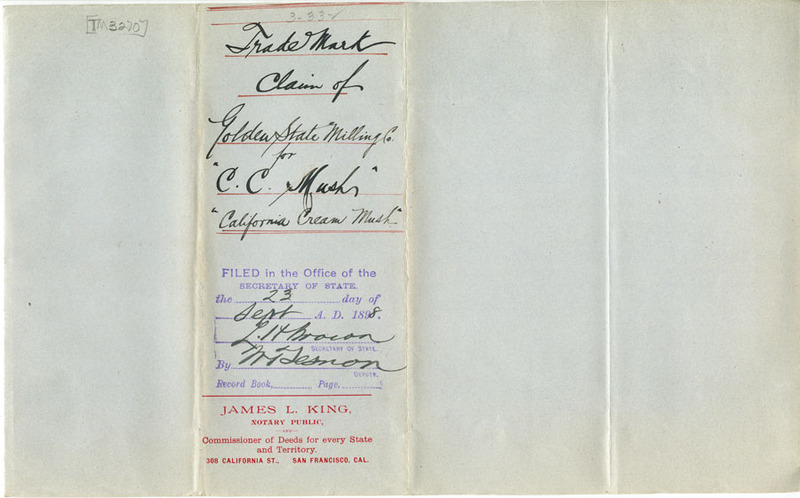 TM3270
3-334
Trade Mark
Claim of
Golden State Milling Co.
for
"C. C. Mush"
"California Cream Mush"
FILED in the Office of the
SECRETARY OF STATE.
the 23 day of
Sept A. D. 1898.
L. H. Brown
SECRETARY OF STATE.
By
DEPUTY.
Record Book, Page,
JAMES L. KING,
NOTARY PUBLIC,
AND
Commissioner of Deeds for every State
and Territory.
308 CALIFORNIA ST., SAN FRANCISCO, CAL.